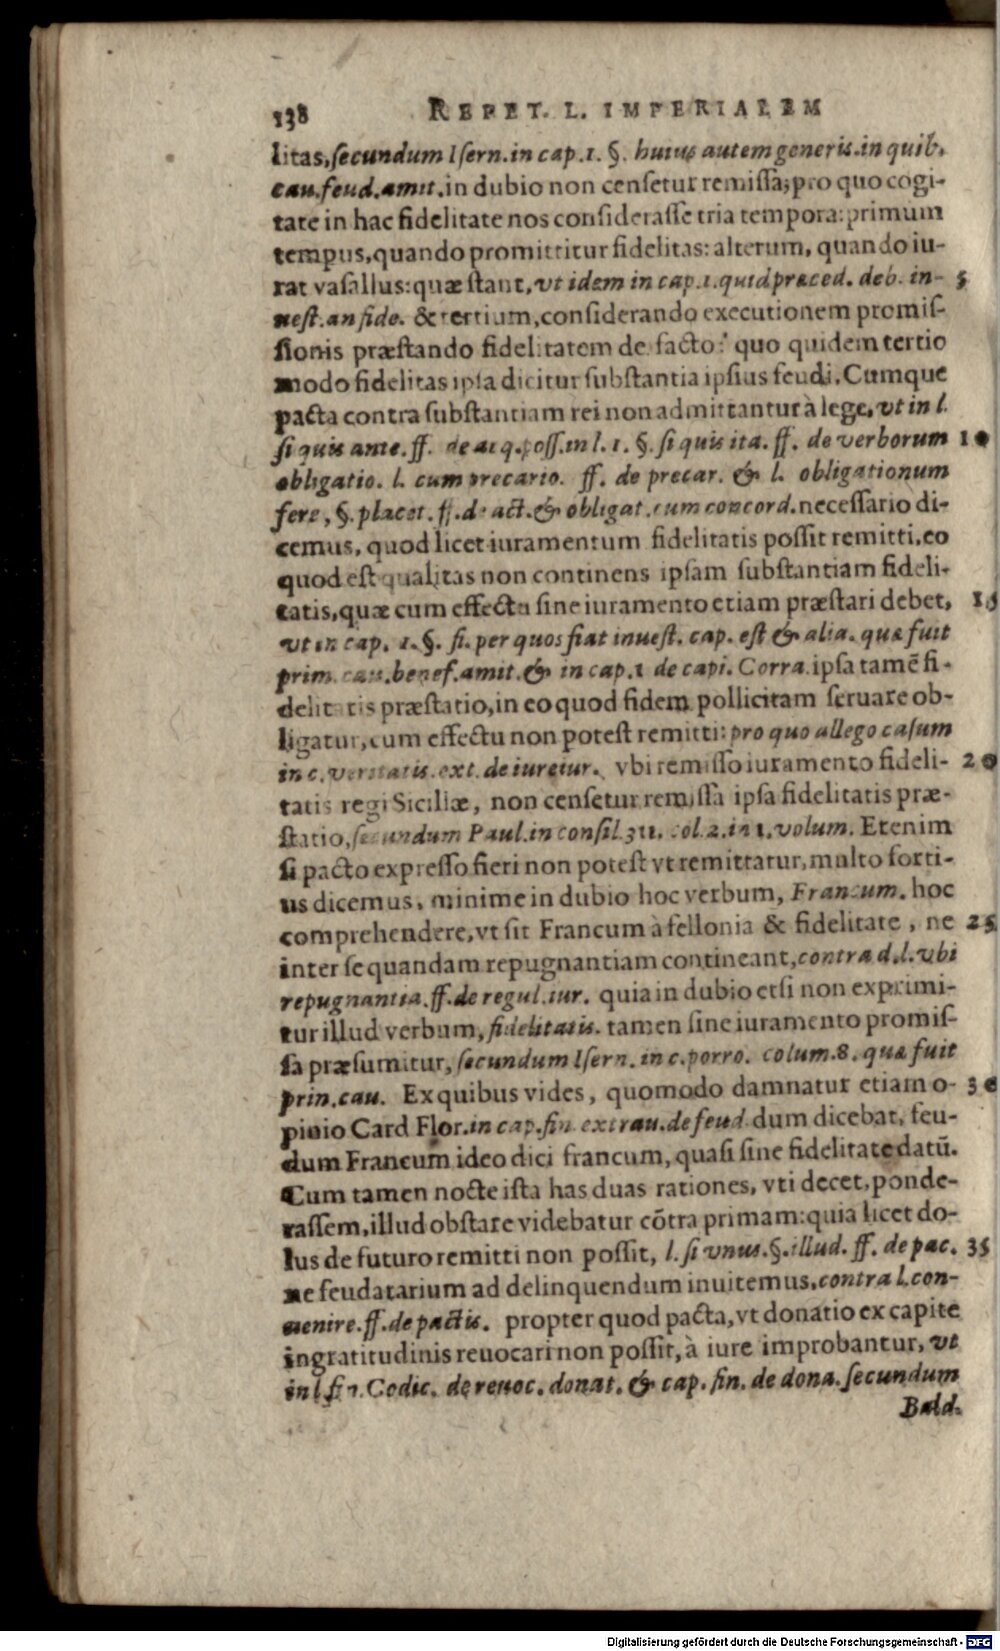 138 REPET. L. IMPERIALEM
litas, secundum Isern. in cap. 1. §. huius autem generis. in quib.
cau. feud. amit. in dubio non censetur remissa; pro quo cogi-
tate in hac fidelitate nos considerasse tria tempora: primum
tempus, quando promittitur fidelitas: alterum, quando iu-
rat vasallus: quæ stant, vt idem in cap. 1. quid præced. deb. in- 5
uest. an fide. & tertium, considerando executionem promis-
sionis præstando fidelitatem de facto: quo quidem tertio
modo fidelitas ipsa dicitur substantia ipsius feudi. Cumque
pacta contra substantiam rei non admittantur à lege, vt in l.
si quis ante. ff. de acq. poss. in l. 1. §. si quis ita. ff. de verborum 10
obligatio. l. cum precario. ff. de precar. & l. obligationum
fere, §. placet. ff. de act. & obligat. cum concord. necessario di-
cemus, quod licet iuramentum fidelitatis possit remitti, eo
quod est qualitas non continens ipsam substantiam fideli-
tatis, quæ cum effectu sine iuramento etiam præstari debet, 15
vt in cap. 1. §. si. per quos fiat inuest. cap. est & alia. quæ fuit
prim. cau. benef. amit. & in cap. 1 de capi. Corra. ipsa tamē fi-
delitatis præstatio, in eo quod fidem pollicitam seruare ob-
ligatur, cum effectu non potest remitti: pro quo allego casum
in c. veritatis. ext. de iureiur. vbi remisso iuramento fideli- 20
tatis regi Siciliæ, non censetur remissa ipsa fidelitatis præ-
statio, secundum Paul. in consil. 311. col. 2. in 1. volum. Etenim
si pacto expresso fieri non potest vt remittatur, multo forti-
us dicemus, minime in dubio hoc verbum, Francum. hoc
comprehendere, vt sit Francum à fellonia & fidelitate, ne 25
inter se quandam repugnantiam contineant, contra d. l. vbi
repugnantia. ff. de regul. iur. quia in dubio etsi non exprimi-
tur illud verbum, fidelitatis. tamen sine iuramento promis-
sa præsumitur, secundum Isern. in c. porro. colum. 8. quæ fuit
prin. cau. Ex quibus vides, quomodo damnatur etiam o- 30
pinio Card Flor. in cap. fin. extrau. de feud. dum dicebat, feu-
dum Francum ideo dici francum, quasi sine fidelitate datū.
Cum tamen nocte ista has duas rationes, vti decet, ponde-
rassem, illud obstare videbatur cōtra primam: quia licet do-
lus de futuro remitti non possit, l. si vnus. §. illud. ff. de pac. 35
ne feudatarium ad delinquendum inuitemus, contra l. con-
uenire. ff. de pactis. propter quod pacta, vt donatio ex capite
ingratitudinis reuocari non possit, à iure improbantur, vt
in l. fin. Codic. de reuoc. donat. & cap. fin. de dona. secundum
Bald.
Digitalisierung gefördert durch die Deutsche Forschungsgemeinschaft - DFG